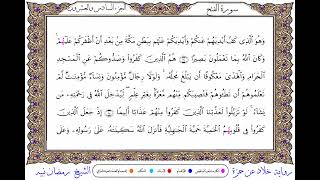 سورة الفتح
الجزء السادس والعشرون
وَهُوَ ٱلَّذِى كَفَّ أَيْدِيَهُمْ عَنكُمْ وَأَيْدِيَكُمْ عَنْهُم بِبَطْنِ مَكَّةَ مِنۢ بَعْدِ أَنْ أَظْفَرَكُمْ عَلَيْهِمْ
وَكَانَ ٱللَّهُ بِمَا تَعْمَلُونَ بَصِيرًا هُمُ ٱلَّذِينَ كَفَرُوا۟ وَصَدُّوكُمْ عَنِ ٱلْمَسْجِدِ
ٱلْحَرَامِ وَٱلْهَدْىَ مَعْكُوفًا أَن يَبْلُغَ مَحِلَّهُۥ وَلَوْلَا رِجَالٌ مُّؤْمِنُونَ وَنِسَآءٌ مُّؤْمِنَٰتٌ لَّمْ
تَعْلَمُوهُمْ أَن تَطَـُٔوهُمْ فَتُصِيبَكُم مِّنْهُم مَّعَرَّةٌۢ بِغَيْرِ عِلْمٍ لِّيُدْخِلَ ٱللَّهُ فِى رَحْمَتِهِۦ مَن
يَشَآءُ لَوْ تَزَيَّلُوا۟ لَعَذَّبْنَا ٱلَّذِينَ كَفَرُوا۟ مِنْهُمْ عَذَابًا أَلِيمًا إِذْ جَعَلَ ٱلَّذِينَ
كَفَرُوا۟ فِى قُلُوبِهِمُ ٱلْحَمِيَّةَ حَمِيَّةَ ٱلْجَٰهِلِيَّةِ فَأَنزَلَ ٱللَّهُ سَكِينَتَهُۥ عَلَىٰ رَسُولِهِۦ وَعَلَى
رواية خلاد عن حمزة
الشيخ رمضان نبيد